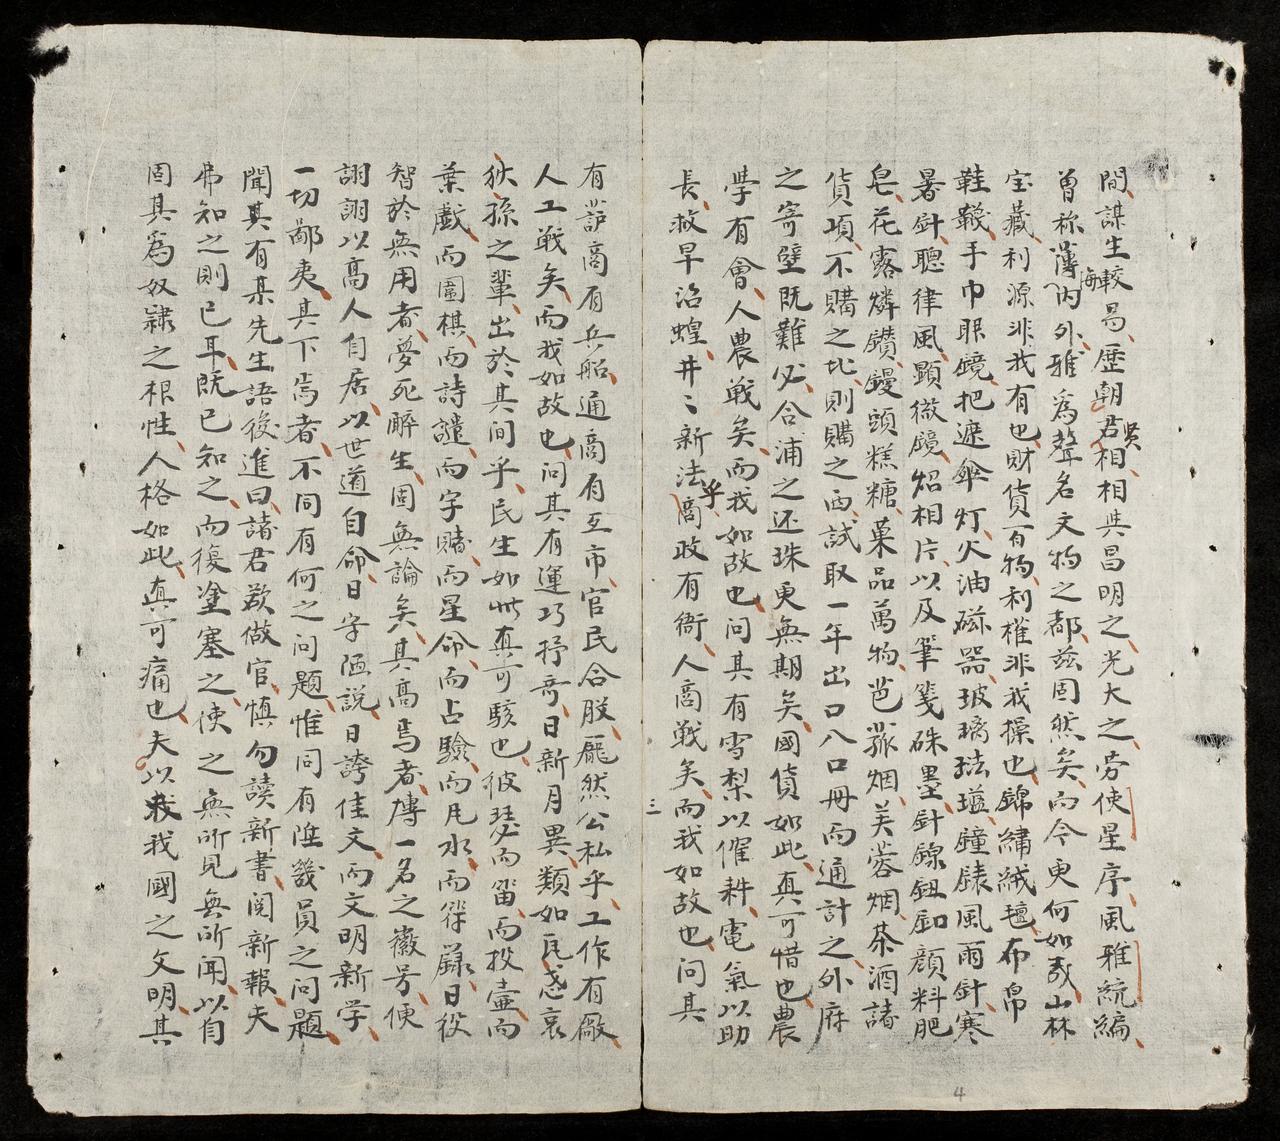 間謀生較易歷朝君賢相相與昌明之光大之勞使星序風雅統編
曾称海內外雅為聲名文物之都茲固然矣而今更何如哉山林
宝藏利源非我有也財貨百物利權非我操也錦繡絨氊布帛
鞋韈手巾眼鏡把遮傘灯火油磁器玻璃琺瑯鐘錶風雨針寒
暑針聰律風顕微鏡炤相片以及筆箋硃墨針線鈕釦顔料肥
皂花露燐鑽饅頭糕糖菓品萬物芭菰烟芙蓉烟茶酒諸
貨項不購之北則購之西試取一年出口入口冊而通計之外府
之寄璧既難必合浦之还珠更無期矣國貨如此真可惜也農
学有會人農戦矣而我如故也問其有雪梨以催耕電氣以助
長救旱治蝗井〻新法乎商政有衙人商戦矣而我如故也問其
三
有葫商有兵船通商有互市官民合股龐然公私乎工作有廠
人工戦矣而我如故也問其有運巧抒奇日新月異類如瓦惑哀
狄孫之輩出於其间乎民生如此真可駭也彼瑟而笛而投壷而
葉戯而圍棋而詩謎而字賭而星命而占驗而凡水而符籙日役
智於無用者夢死酔生固無論矣其高焉者慱一名之徽号便
詡詡以高人自居以世道自命日字陋說日誇佳文而文明新学
一切鄙夷其下焉者不同有何之问題惟同有陞幾員之问題
聞其有某先生語後進曰諸君欲做官慎勿讀新書閱新報夫
弗知之則已耳既已知之而復塗塞之使之無所見無所聞以自
固其為奴隷之根性人格如此真可痛也夫以我國之文明其
4